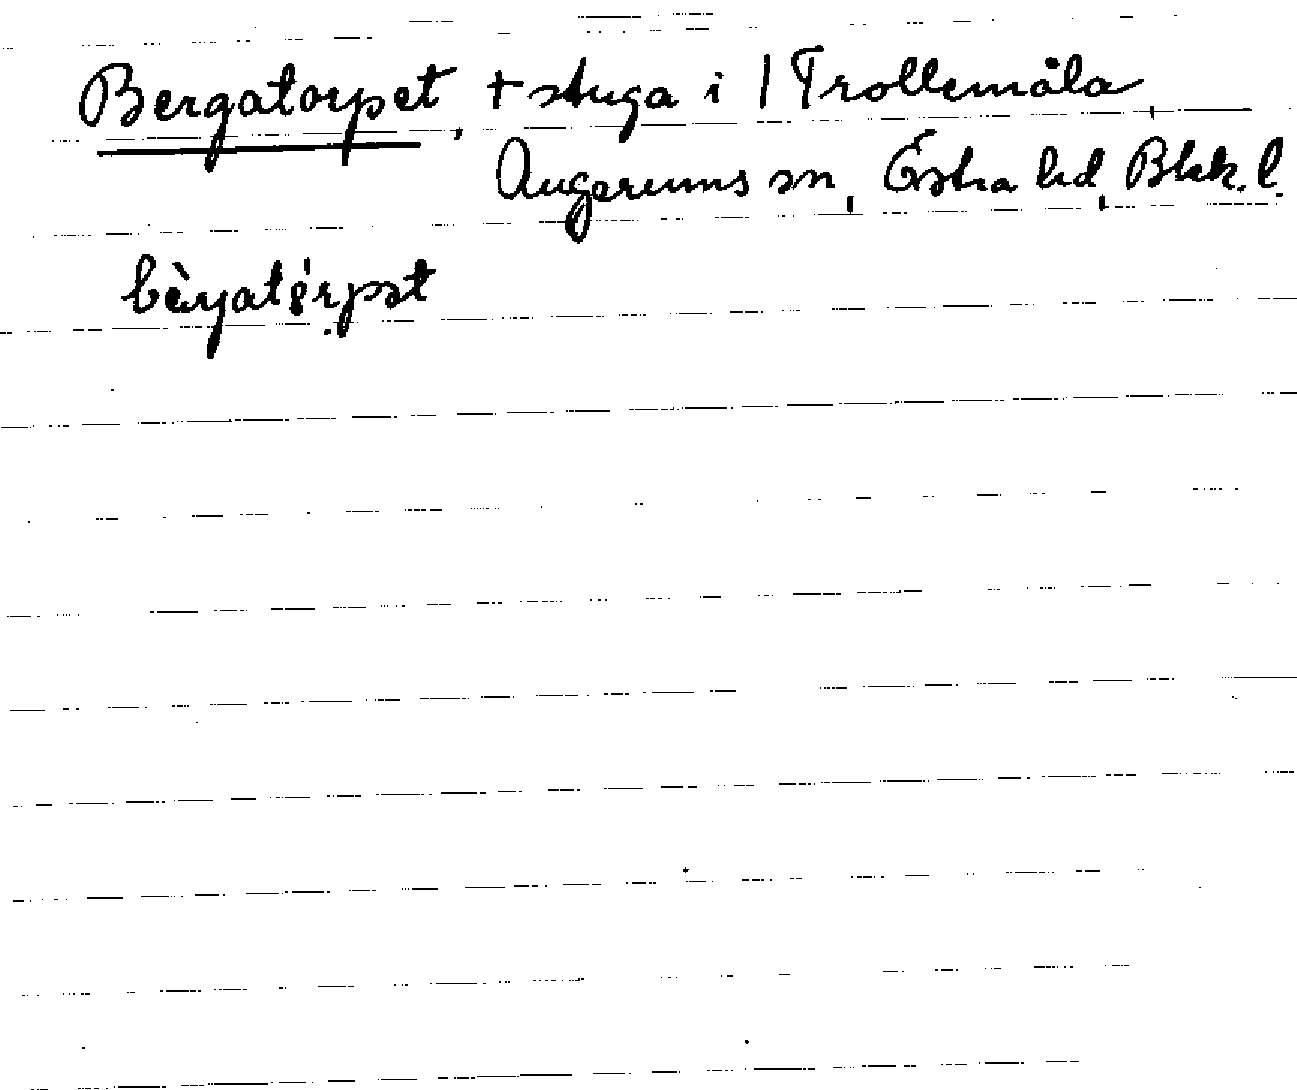 Bergatorpet, + stuga i / Trollemåla,
Augerums sn, Östra hd, Blek. l.